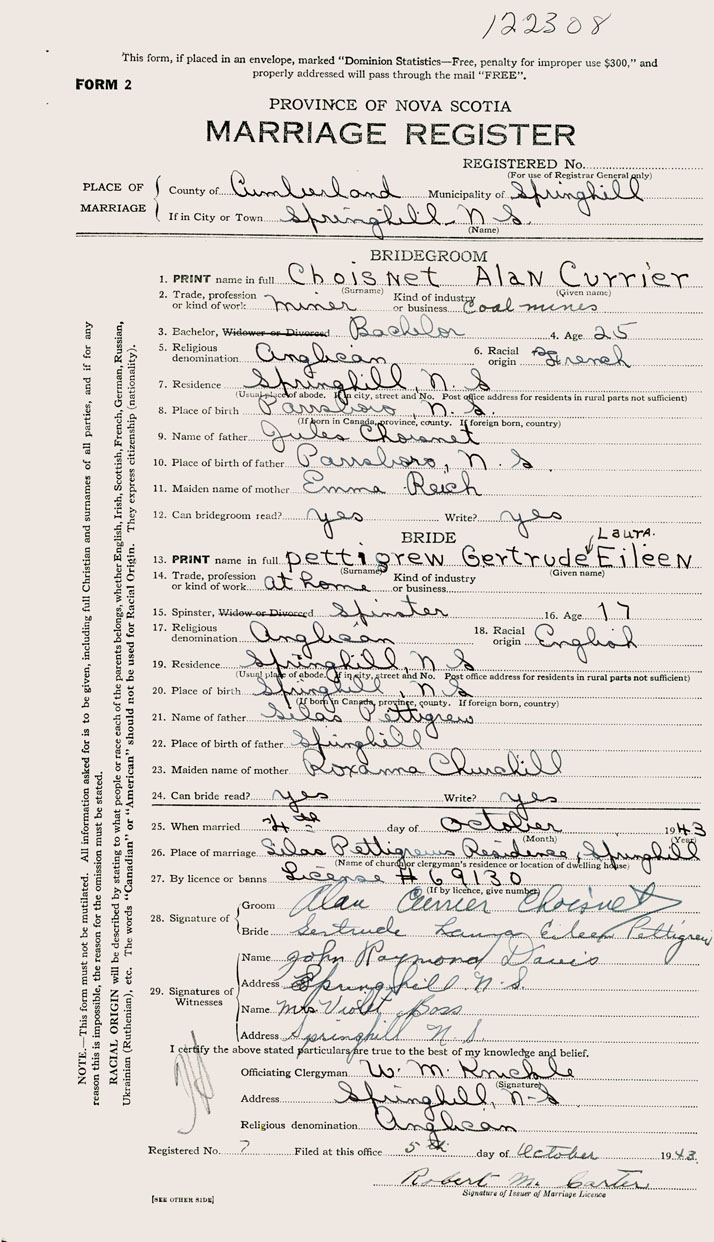 122308
This form, if placed in an envelope, marked "Dominion Statistics—Free, penalty for improper use $300," and
properly addressed will pass through the mail "FREE".
FORM 2
PROVINCE OF NOVA SCOTIA
MARRIAGE REGISTER
REGISTERED No.
(For use of Registrar General only)
PLACE OF MARRIAGE
County of Cumberland Municipality of Springhill
If in City or Town Springhill N S
(Name)
BRIDEGROOM
1. PRINT name in full Choisnet Alan Currier
(Surname) (Given name)
2. Trade, profession or kind of work miner Kind of industry or business Coal mines
3. Bachelor, Widower or Divorced Bachelor 4. Age 25
5. Religious denomination Anglican 6. Racial origin French
7. Residence Springhill, N. S
(Usual place of abode. If in city, street and No. Post office address for residents in rural parts not sufficient)
8. Place of birth Parrsboro, N. S.
(If born in Canada, province, county. If foreign born, country)
9. Name of father Jules Choisnet
10. Place of birth of father Parrsboro, N. S.
11. Maiden name of mother Emma Reich
12. Can bridegroom read? yes Write? yes
BRIDE
Laura.
13. PRINT name in full pettigrew Gertrude Eileen
(Surname) (Given name)
14. Trade, profession or kind of work at home Kind of industry or business
15. Spinster, Widow or Divorced Spinster 16. Age 17
17. Religious denomination Anglican 18. Racial origin English
19. Residence Springhill, N S
(Usual place of abode. If in city, street and No. Post office address for residents in rural parts not sufficient)
20. Place of birth Springhill, N S
(If born in Canada, province, county. If foreign born, country)
21. Name of father Silas Pettigrew
22. Place of birth of father Springhill
23. Maiden name of mother Roxanna Churchill
24. Can bride read? yes Write? yes
25. When married 4th day of October 1943
(Month) (Year)
26. Place of marriage Silas Pettigrews Residence, Springhill
(Name of church or clergyman's residence or location of dwelling house)
27. By licence or banns License # 69130
(If by licence, give number)
28. Signature of
Groom Alan Currier Choisnet
Bride Gertrude Laura Eileen Pettigrew
29. Signatures of Witnesses
Name John Raymond Davis
Address Springhill N.S.
Name Mrs Violet Boss
Address Springhill N.S.
I certify the above stated particulars are true to the best of my knowledge and belief.
Officiating Clergyman W. M. Knickle
(Signature)
Address Springhill, N-S
Religious denomination Anglican
Registered No. 7 Filed at this office 5th day of October 1943.
Robert M. Carter
Signature of Issuer of Marriage Licence
[SEE OTHER SIDE]
NOTE.—This form must not be mutilated. All information asked for is to be given, including full Christian and surnames of all parties, and if for any
reason this is impossible, the reason for the omission must be stated.
RACIAL ORIGIN will be described by stating to what people or race each of the parents belongs, whether English, Irish, Scottish, French, German, Russian,
Ukrainian (Ruthenian), etc. The words "Canadian" or "American" should not be used for Racial Origin. They express citizenship (nationality).